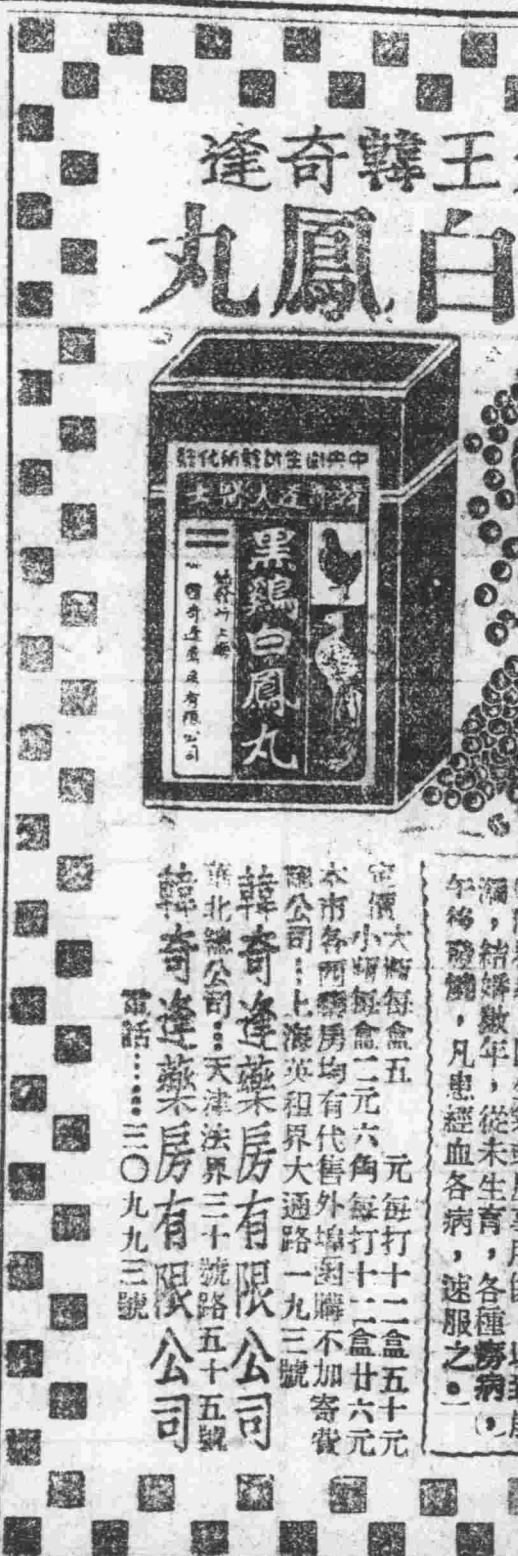 王韓奇逢
白鳳丸
黑鷄白鳳丸
漏，結婚數年，從未生育，各種癆病，
午後發燒，凡患經血各病，速服之。
定價大瓶每盒五　元每打十二盒五十元
小瓶每盒二元六角每打十二盒廿六元
本市各西藥房均有代售外埠函購不加寄費
總公司…上海英租界大通路一九三號
韓奇逢藥房有限公司
華北總公司…天津法界三十號路五十五號
韓奇逢藥房有限公司
電話……三〇九九三號